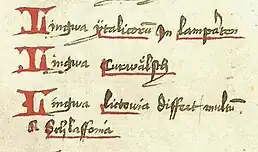 Lingwa ytalicorum In lamparten
Lingwa Curwälsch
Lingwa lictowia differt multum
a Schlaffonia